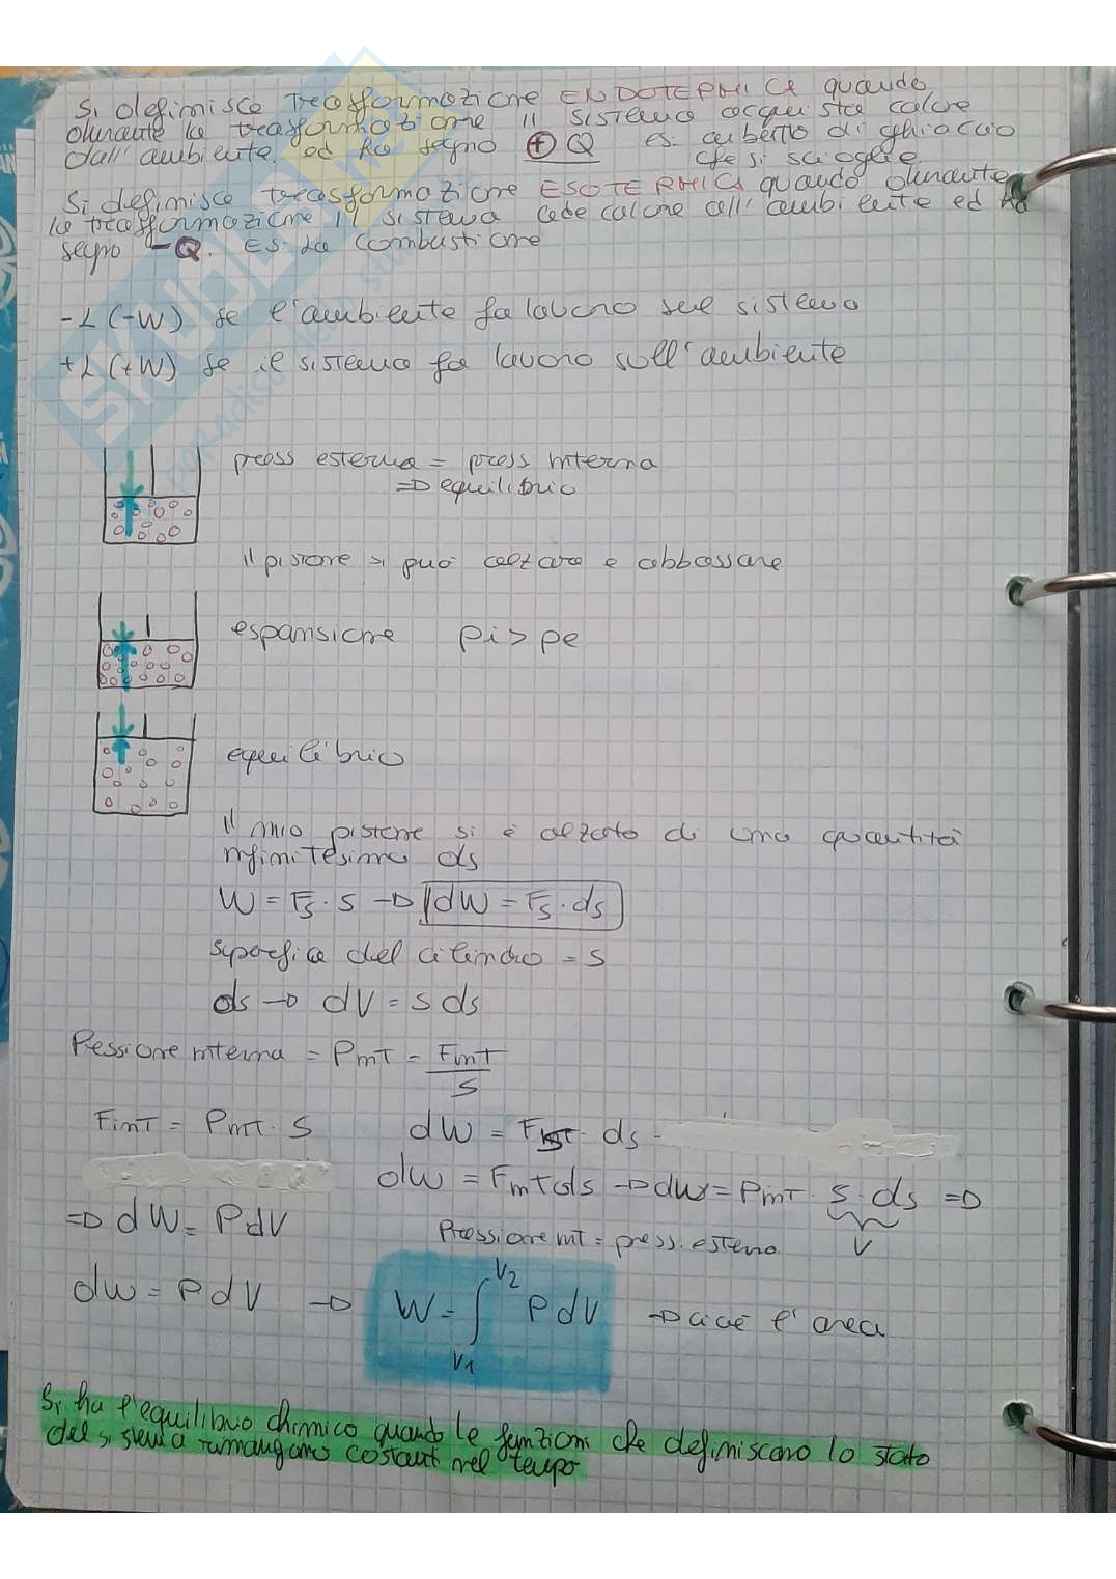 Si definisce trasformazione ENDOTERMICA quando
durante la trasformazione il sistema acquista calore
dall'ambiente ed ha segno + Q es. cubetto di ghiaccio
che si scioglie
Si definisce trasformazione ESOTERMICA quando durante
la trasformazione il sistema cede calore all'ambiente ed ha
segno -Q. ES. La combustione
-L (-W) se l'ambiente fa lavoro sul sistema
+L (+W) se il sistema fa lavoro sull'ambiente
press esterna = press interna
=D equilibrio
il pistone si può alzare e abbassare
espansione pi > pe
equilibrio
Il mio pistone si è alzato di una quantità
infinitesima ds
W = Fs · s -D dW = Fs · ds
superficie del cilindro = s
ds -D dV = s ds
Pressione interna = Pint = Fint / S
Fint = Pint · S dW = Fint · ds
dw = Fint ds -D dw = Pint · s · ds =D
V
=D dW = PdV Pressione int = press. esterna
dw = P dV -D W = ∫ V1 V2 P dV -D cioè l'area
Si ha l'equilibrio chimico quando le funzioni che definiscono lo stato
del sistema rimangono costanti nel tempo
SKUOLA.net